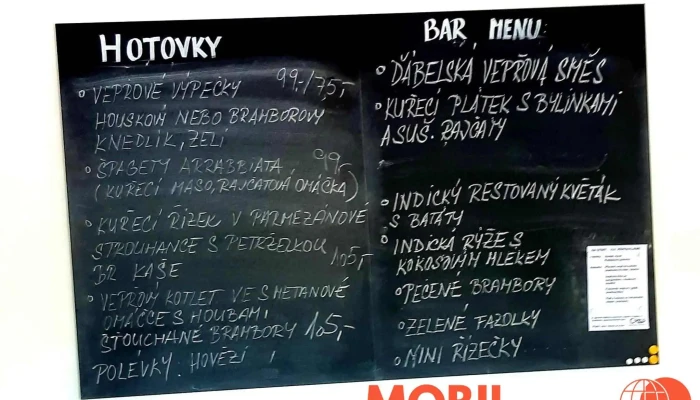 HOTOVKY
VEPŘOVÉ VÝPEČKY 99,-/75,-
HOUSKOVÝ NEBO BRAMBOROVÝ
KNEDLÍK, ZELÍ
ŠPAGETY ARRABBIATA 99,-
(KUŘECÍ MASO, RAJČATOVÁ OMÁČKA)
KUŘECÍ ŘÍZEK V PARMEZÁNOVÉ
STROUHANCE S PETRŽELKOU 105,-
BR KAŠE
VEPŘOVÝ KOTLET VE SMETANOVÉ
OMÁČCE S HOUBAMI
ŠŤOUCHANÉ BRAMBORY 105,-
POLÉVKY. HOVĚZÍ
BAR MENU
ĎÁBELSKÁ VEPŘOVÁ SMĚS
KUŘECÍ PLÁTEK S BYLINKAMI
A SUŠ. RAJČATY
INDICKÝ RESTOVANÝ KVĚTÁK
S BATÁTY
INDICKÁ RÝŽE S
KOKOSOVÝM MLÉKEM
PEČENÉ BRAMBORY
ZELENÉ FAZOLKY
MINI ŘÍZEČKY
MOBIL